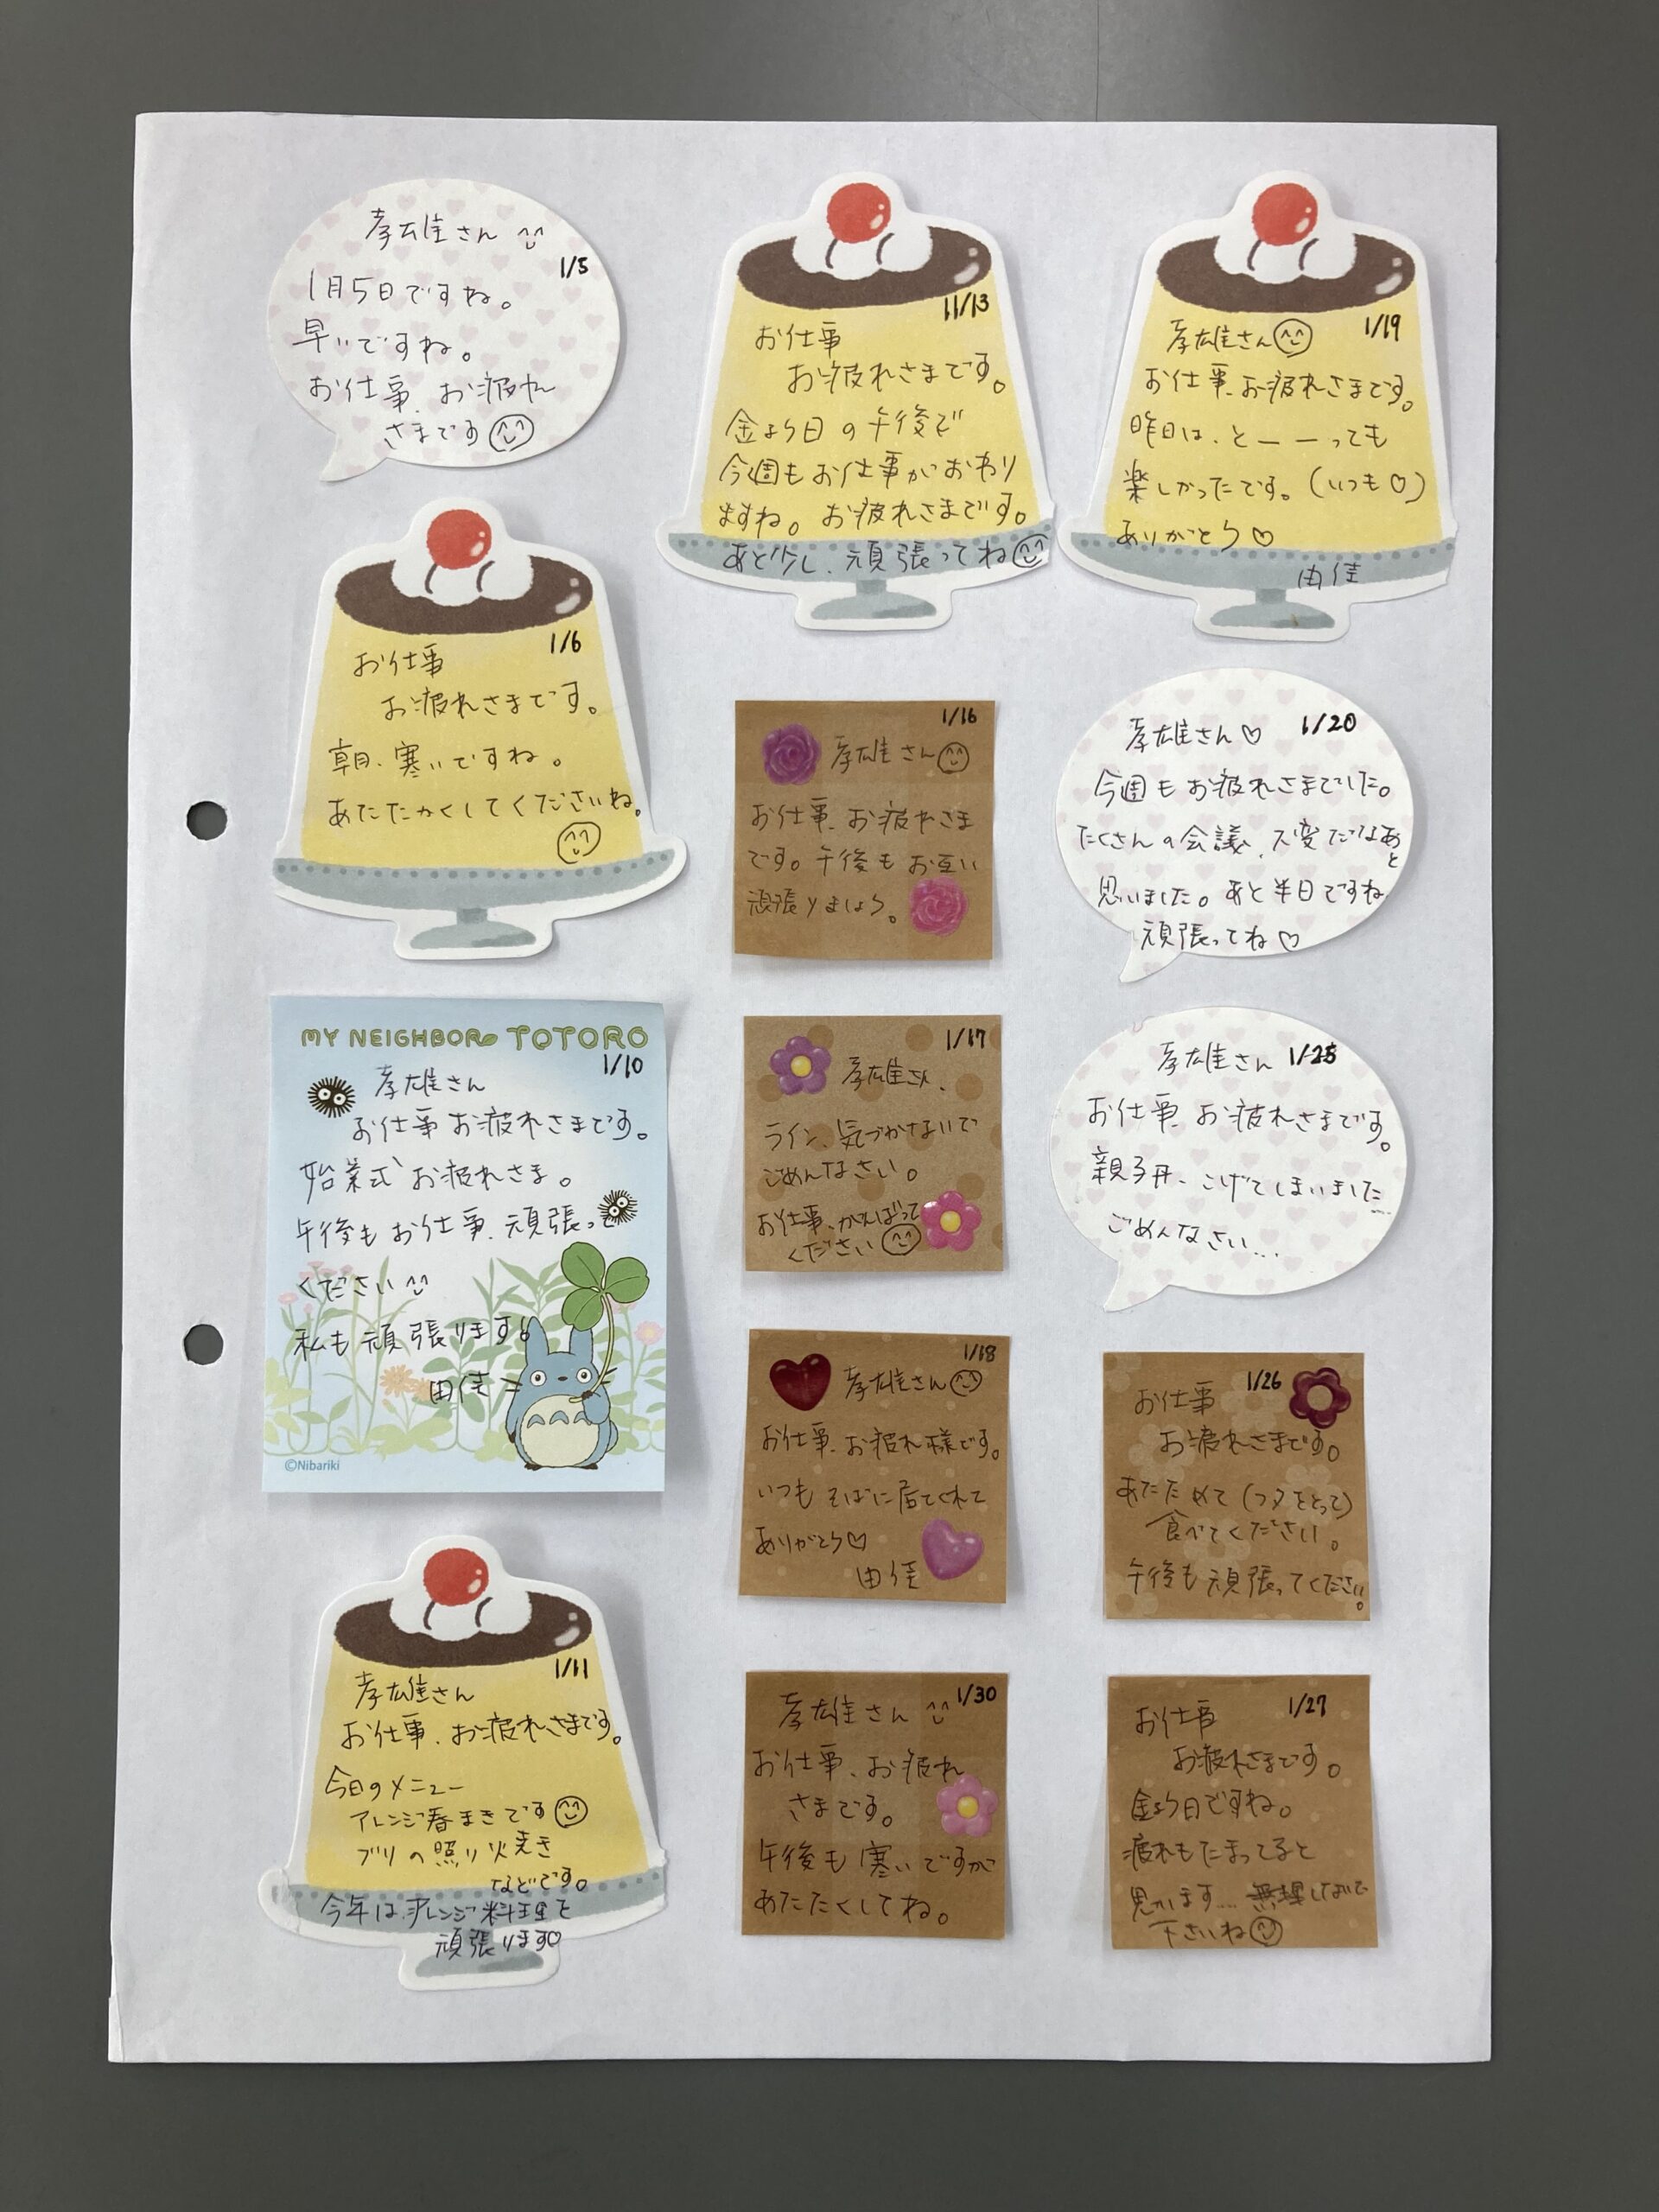 孝雄さん
1/5
1月5日ですね。
早いですね。
お仕事、お疲れ
さまです
1/6
お仕事
お疲れさまです。
朝、寒いですね。
あたたかくしてくださいね。
MY NEIGHBOR TOTORO
1/10
孝雄さん
お仕事お疲れさまです。
始業式お疲れさま。
午後もお仕事、頑張って
ください
私も頑張ります
由佳
©Nibariki
1/11
孝雄さん
お仕事、お疲れさまです。
今日のメニュー
アレンジ春まきです
ブリの照り焼き
などです。
今年は、アレンジ料理を
頑張ります♡
11/13
お仕事
お疲れさまです。
金よう日の午後で
今週もお仕事がおわり
ますね。お疲れさまです。
あと少し、頑張ってね
1/16
孝雄さん
お仕事、お疲れさま
です。午後もお互い
頑張りましょう。
1/17
孝雄さん、
ライン、気づかさないで
ごめんなさい。
お仕事、がんばって
ください
1/18
孝雄さん
お仕事、お疲れ様です。
いつもそばに居てくれて
ありがとう♡
由佳
1/30
孝雄さん
お仕事、お疲れ
さまです。
午後も寒いですが
あたたくしてね。
1/19
孝雄さん
お仕事、お疲れさまです。
昨日は、とーーっても
楽しかったです。(いつも♡)
ありがとう♡
由佳
1/20
孝雄さん♡
今週もお疲れさまでした。
たくさんの会議、大変だなあと
思いました。あと半日ですね
頑張ってね♡
孝雄さん 1/25
お仕事、お疲れさまです。
親子丼、こげてしまいました
ごめんなさい...
1/26
お仕事
お疲れさまです。
あたためて(フタをとって)
食べてください。
午後も頑張ってください
1/27
お仕事
お疲れさまです。
金よう日ですね。
疲れもたまってると
思います.... 無理しないで
下さいね